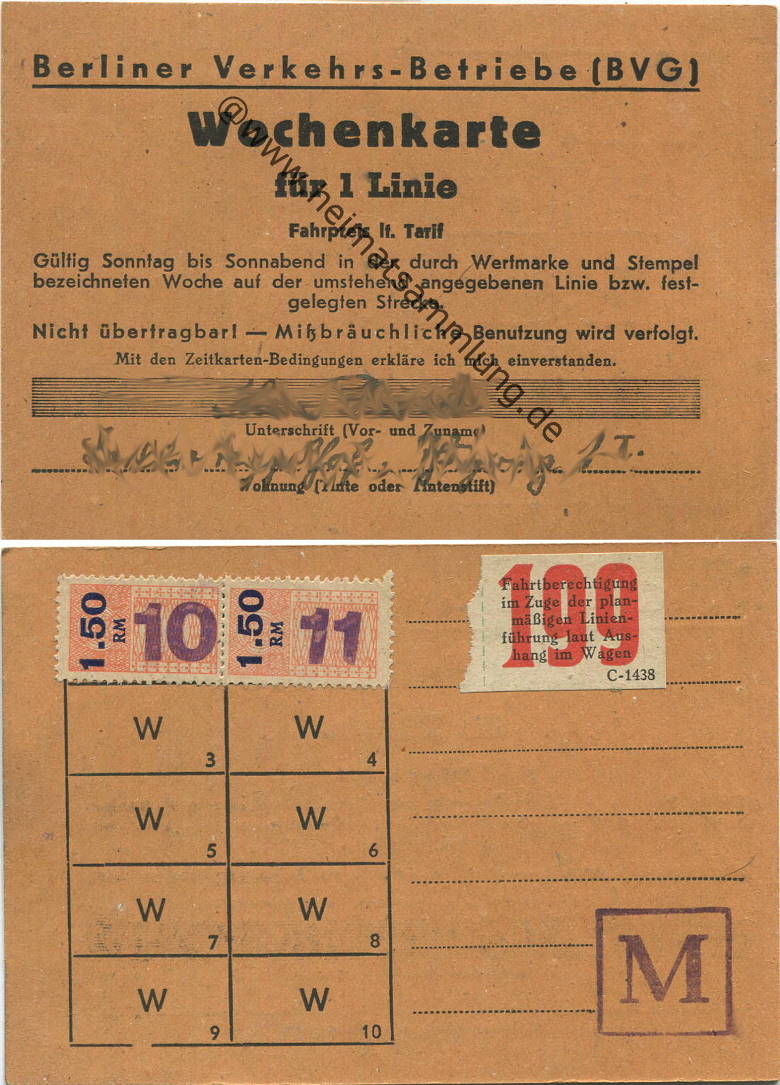 Berliner Verkehrs-Betriebe (BVG)
Wochenkarte
für 1 Linie
Fahrpreis lt. Tarif
Gültig Sonntag bis Sonnabend in der durch Wertmarke und Stempel
bezeichneten Woche auf der umstehend angegebenen Linie bzw. fest-
gelegten Strecke.
Nicht übertragbar! — Mißbräuchliche Benutzung wird verfolgt.
Mit den Zeitkarten-Bedingungen erkläre ich mich einverstanden.
Unterschrift (Vor- und Zuname)
Wohnung (Tinte oder Tintenstift)
@www.heimatsammlung.de
1.50 RM 10 1.50 RM 11
199
Fahrtberechtigung
im Zuge der plan-
mäßigen Linien-
führung laut Aus-
hang im Wagen
C-1438
W 3 W 4
W 5 W 6
W 7 W 8
W 9 W 10
M